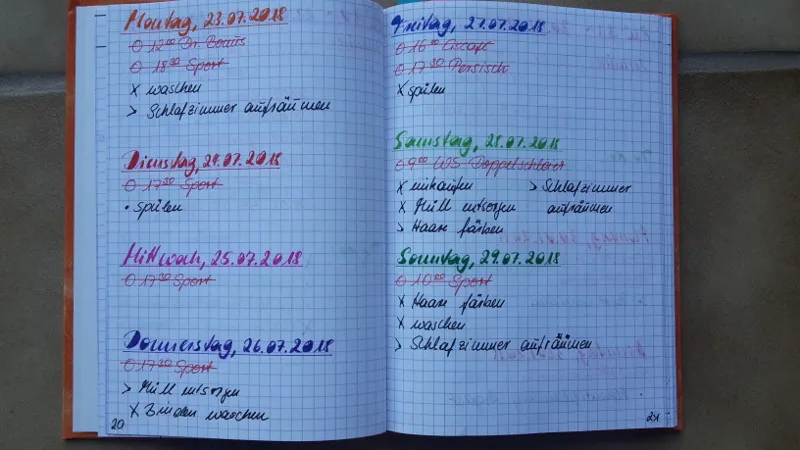 Montag, 23.07.2018
O 12⁰⁰ Dr.
O 18³⁰ Sport
X waschen
> Schlafzimmer aufräumen
Dienstag, 24.07.2018
O 17³⁰ Sport
• Spülen
Mittwoch, 25.07.2018
O 17³⁰ Sport
Donnerstag, 26.07.2018
O 17³⁰ Sport
> Müll entsorgen
X Binden waschen
20
Freitag, 27.07.2018
O 16⁰⁰
O 17³⁰ Persisch
X spülen
Samstag, 28.07.2018
O 9⁰⁰ WS Doppelschwert
X einkaufen > Schlafzimmer
X Müll entsorgen aufräumen
> Haare färben
Sonntag, 29.07.2018
O 10⁰⁰ Sport
X Haare färben
X waschen
> Schlafzimmer aufräumen
21